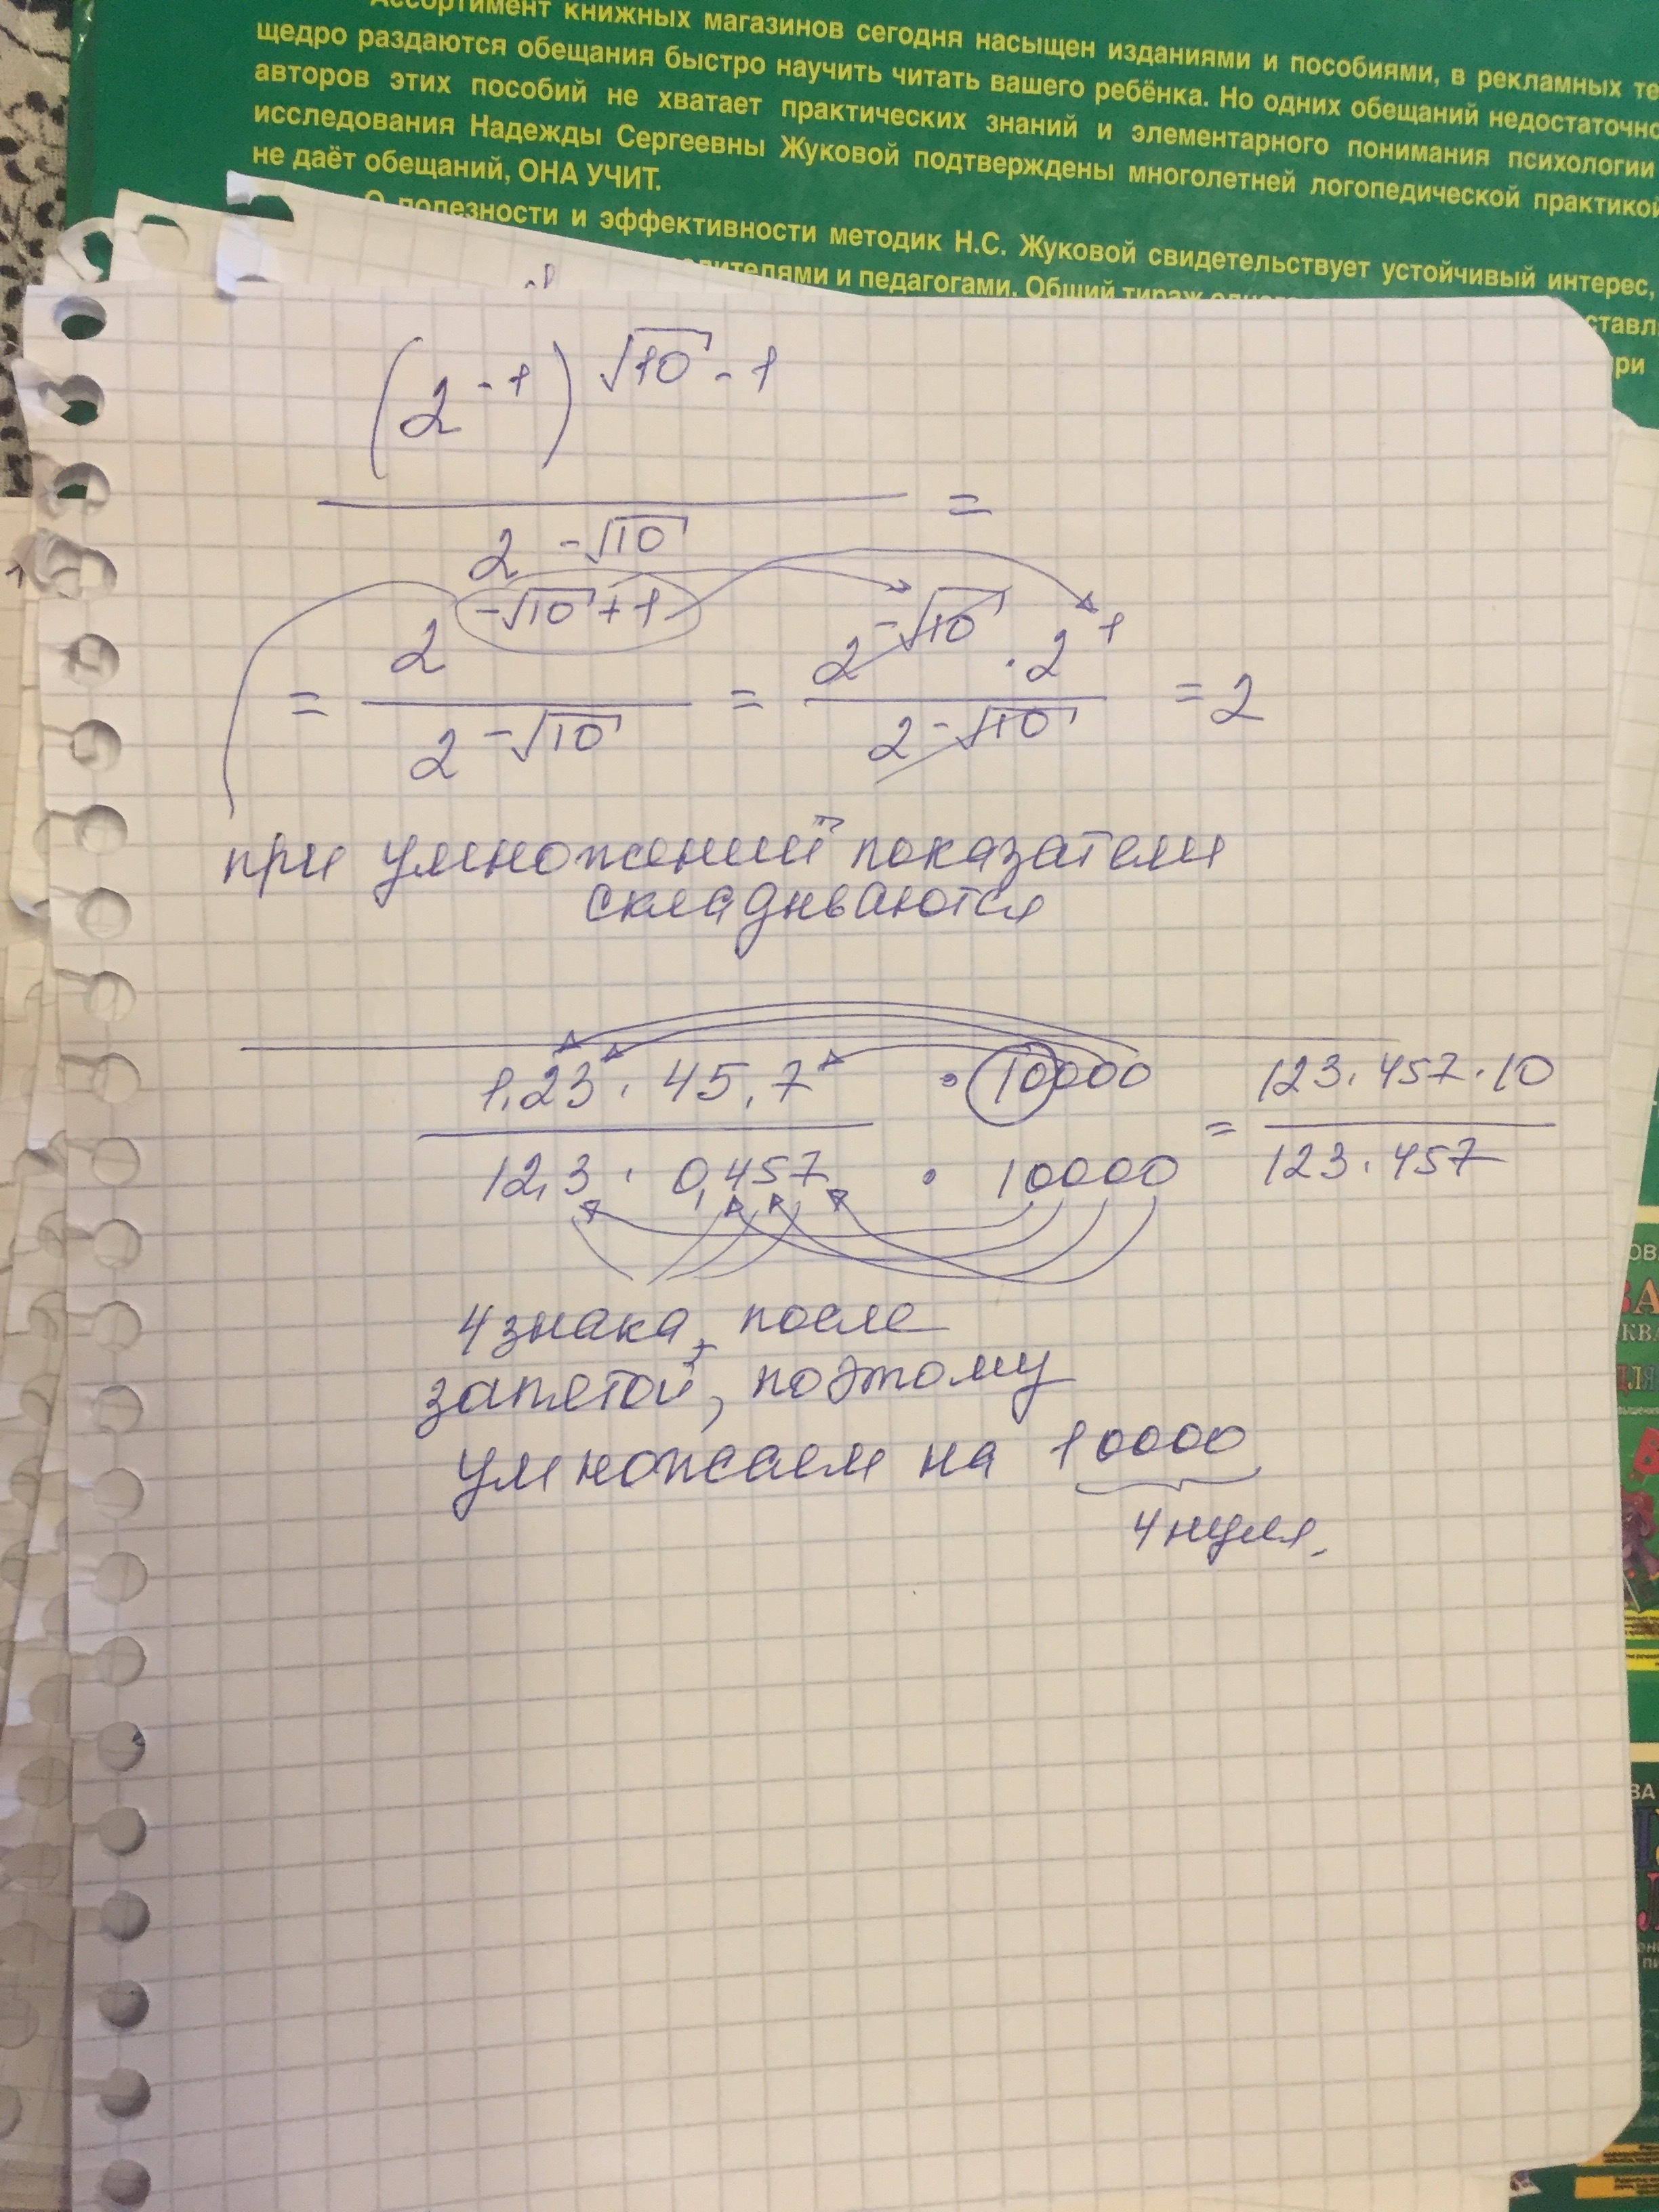 Ассортимент книжных магазинов сегодня насыщен изданиями и пособиями, в рекламных те
щедро раздаются обещания быстро научить читать вашего ребёнка. Но одних обещаний недостаточно
авторов этих пособий не хватает практических знаний и элементарного понимания психологии
исследования Надежды Сергеевны Жуковой подтверждены многолетней логопедической практикой
не даёт обещаний, ОНА УЧИТ.
О полезности и эффективности методик Н.С. Жуковой свидетельствует устойчивый интерес,
дителями и педагогами. Общий тираж одного
ставл
ри
(2^-1)^√10 - 1
=
2^-√10
= 2^-√10+1 / 2^-√10 = 2^-√10 · 2^1 / 2^-√10 = 2
при умножений показатели
складываются
1,23 · 45,7 · 10000 = 123 · 457 · 10
12,3 · 0,457 · 10000 123 · 457
4 знака, после
запятой, поэтому
умножаем на 10000
4 нуля.